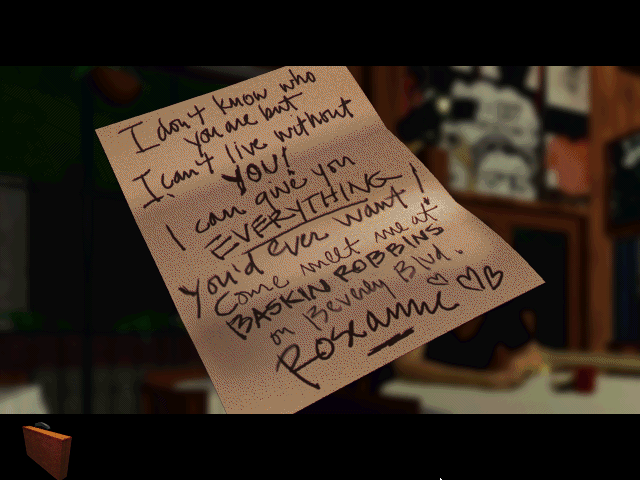 I don't know who
you are but
I can't live without
YOU!
I can give you
EVERYTHING
You'd ever want!
Come meet me at
BASKIN ROBBINS
on Beverly Blvd.
Roxanne